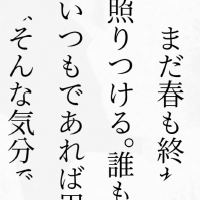 まだ春も終
照りつける。誰も
いつもであれば
そんな気分で